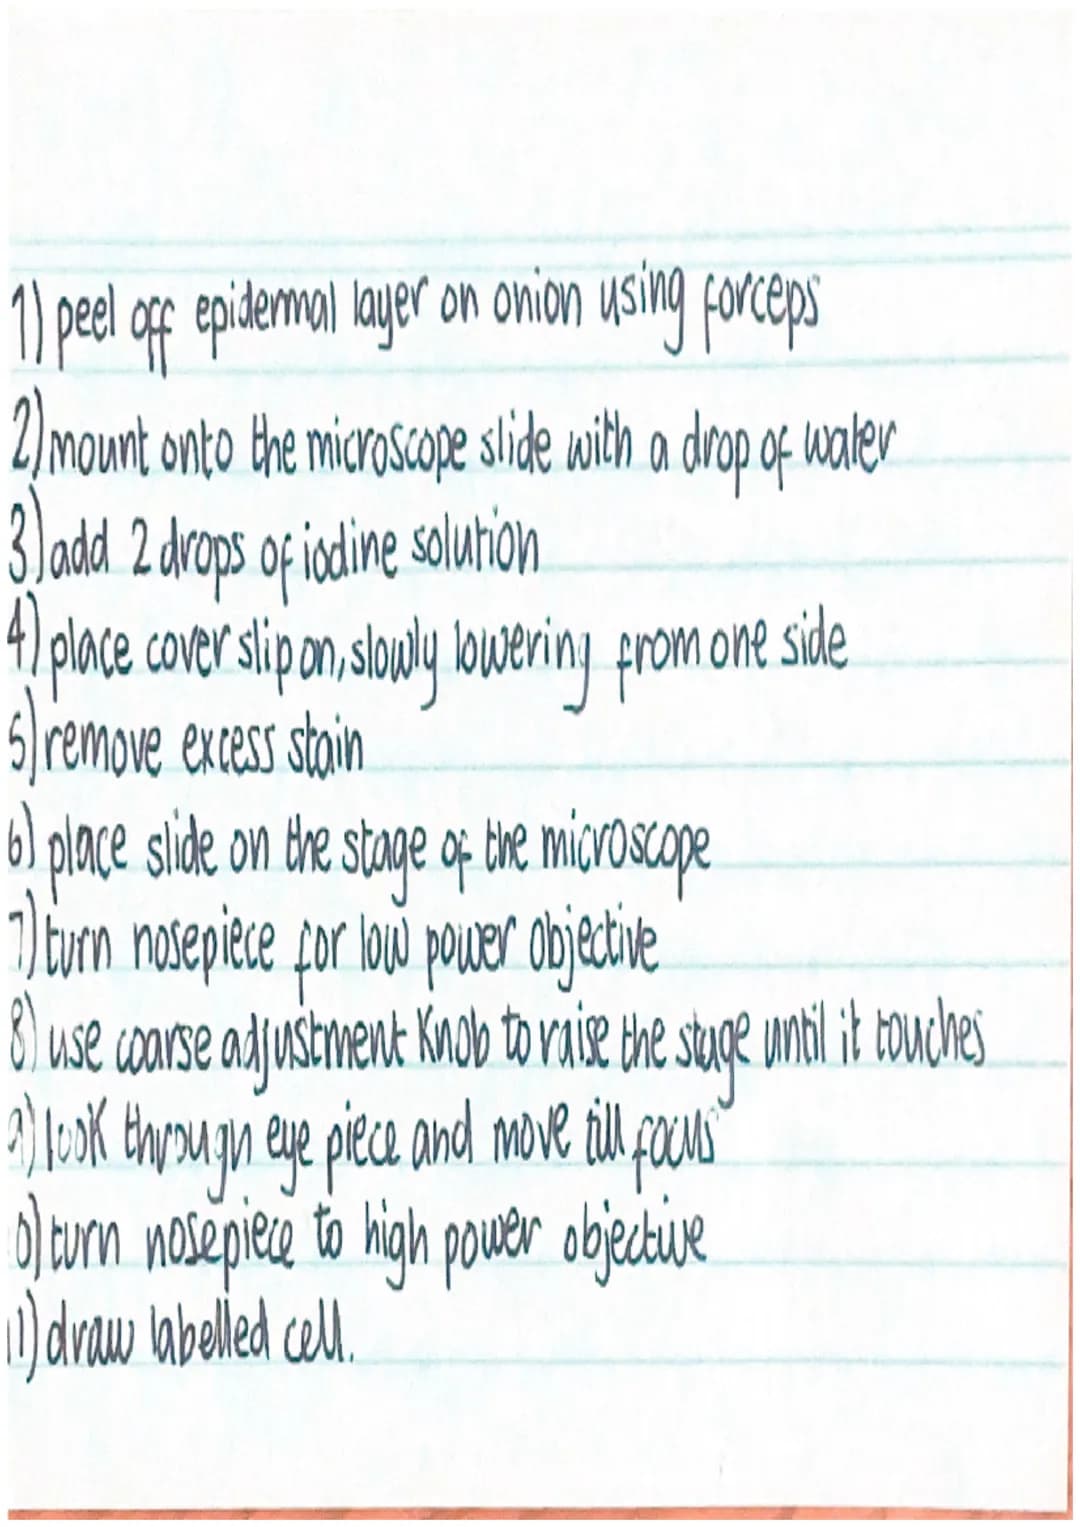 1) peel off epidermal layer on onion using forceps
2) mount onto the microscope slide with a drop of water
3) add 2 drops of iodine solution
4) place cover slip on, slowly lowering from one side
5) remove excess stain
6) place slide on the stage of the microscope
7) turn nosepiece for low power objective
8) use coarse adjustment knob to raise the stage until it touches
9) look through eye piece and move till focus
0) turn nosepiece to high power objective
11) draw labelled cell.